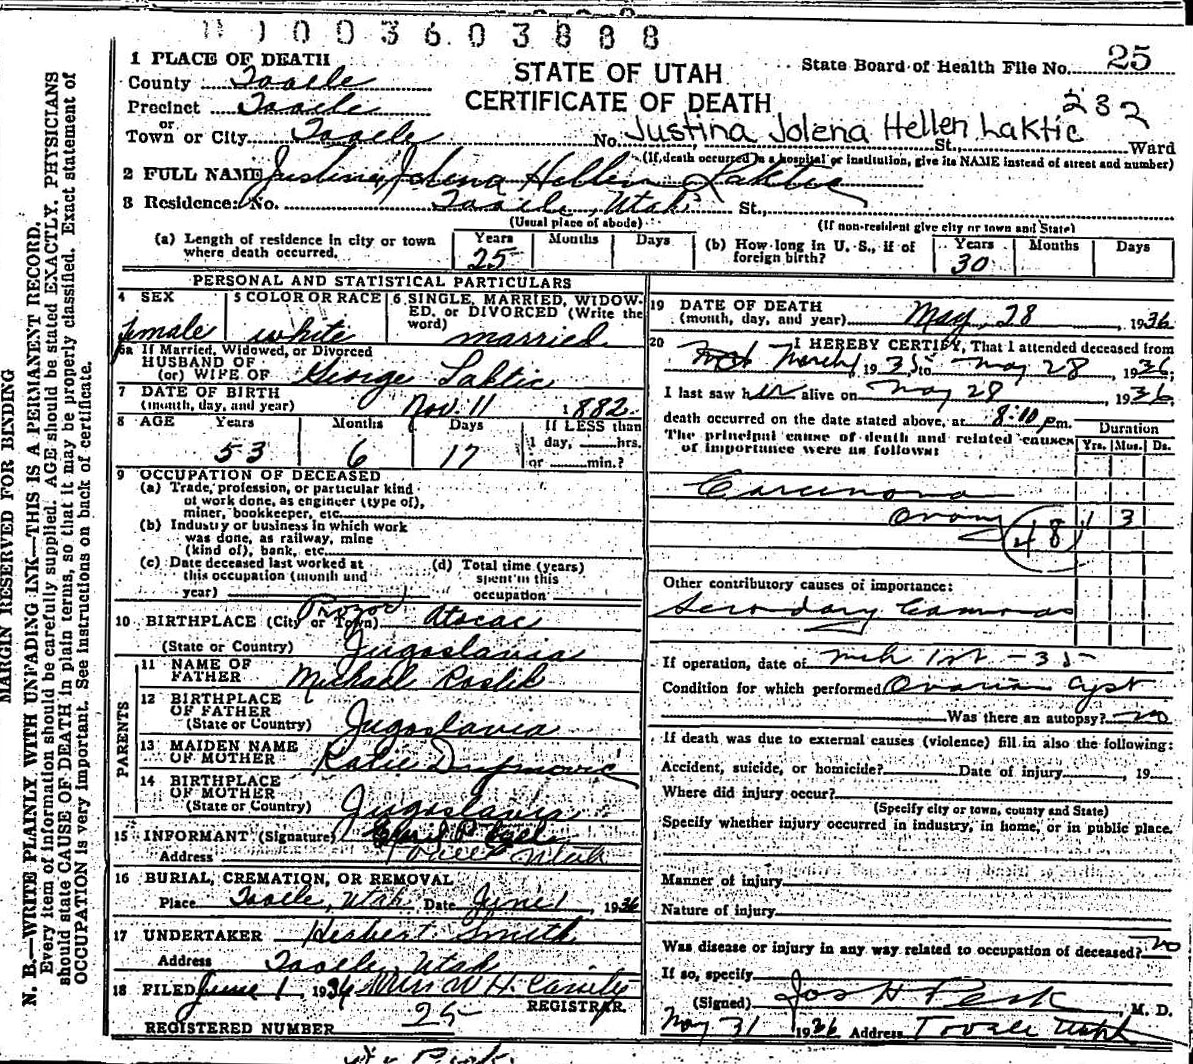 11003603888
1 PLACE OF DEATH
STATE OF UTAH
State Board of Health File No. 25
County Tooele
CERTIFICATE OF DEATH
232
Precinct Tooele
or
Town or City Tooele No. Justina Jolena Hellen Laktic St., Ward
(If death occurred in a hospital or institution, give its NAME instead of street and number)
2 FULL NAME Justina Jolena Hellen Laktic
3 Residence: No. Tooele, Utah St.,
(Usual place of abode) (If non-resident give city or town and State)
(a) Length of residence in city or town where death occurred. Years 25 Months Days
(b) How long in U. S., if of foreign birth? Years 30 Months Days
PERSONAL AND STATISTICAL PARTICULARS
4 SEX female
5 COLOR OR RACE white
6 SINGLE, MARRIED, WIDOWED, or DIVORCED (Write the word) married
6a If Married, Widowed, or Divorced
HUSBAND OF
(or) WIFE OF George Laktic
7 DATE OF BIRTH
(month, day, and year) Nov. 11 1882
8 AGE Years 53 Months 6 Days 17
If LESS than
1 day, hrs.
or min.?
9 OCCUPATION OF DECEASED
(a) Trade, profession, or particular kind
of work done, as engineer (type of),
miner, bookkeeper, etc.
(b) Industry or business in which work
was done, as railway, mine
(kind of), bank, etc.
(c) Date deceased last worked at
this occupation (month and
year)
(d) Total time (years)
spent in this
occupation
10 BIRTHPLACE (City or Town) Prozor Atocac
(State or Country) Jugoslavia
PARENTS
11 NAME OF
FATHER Michael
12 BIRTHPLACE
OF FATHER
(State or Country) Jugoslavia
13 MAIDEN NAME
OF MOTHER Katie
14 BIRTHPLACE
OF MOTHER
(State or Country) Jugoslavia
15 INFORMANT (Signature)
Address Tooele Utah
16 BURIAL, CREMATION, OR REMOVAL
Place Tooele, Utah Date June 1, 1936
17 UNDERTAKER Herbert Smith
Address Tooele, Utah
18 FILED June 1 1936
REGISTRAR
REGISTERED NUMBER 25
19 DATE OF DEATH
(month, day, and year) May, 28, 1936
20 I HEREBY CERTIFY, That I attended deceased from
March, 1935, to May 28, 1936;
I last saw her alive on May 28, 1936,
death occurred on the date stated above, at 8:10 p m.
The principal cause of death and related causes
of importance were as follows:
Duration
Yrs. Mos. Ds.
Carcinoma
Ovary 1 3
48
Other contributory causes of importance:
Secondary
If operation, date of Mch 1st - 35
Condition for which performed Ovarian Cyst
Was there an autopsy? no
If death was due to external causes (violence) fill in also the following:
Accident, suicide, or homicide? Date of injury , 19
Where did injury occur?
(Specify city or town, county and State)
Specify whether injury occurred in industry, in home, or in public place.
Manner of injury
Nature of injury
Was disease or injury in any way related to occupation of deceased? no
If so, specify
(Signed) Jos H Peck M. D.
May 31 1936 Address Tooele Utah
MARGIN RESERVED FOR BINDING
N. B.—WRITE PLAINLY WITH UNFADING INK—THIS IS A PERMANENT RECORD.
Every item of information should be carefully supplied. AGE should be stated EXACTLY. PHYSICIANS
should state CAUSE OF DEATH in plain terms, so that it may be properly classified. Exact statement of
OCCUPATION is very important. See instructions on back of certificate.